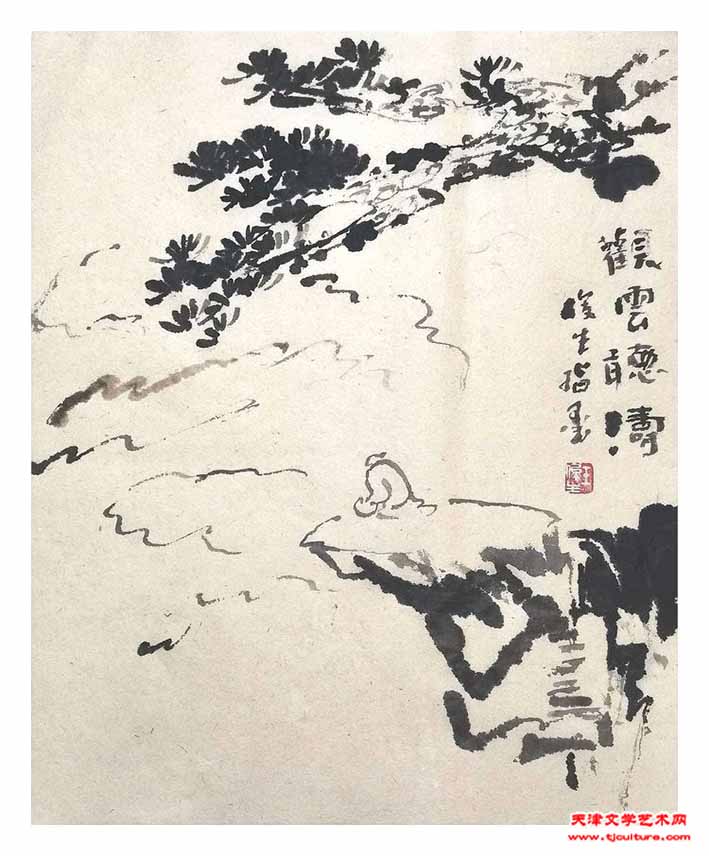 觀雲聽濤
俊生指墨
天津文学艺术网
www.tjculture.com